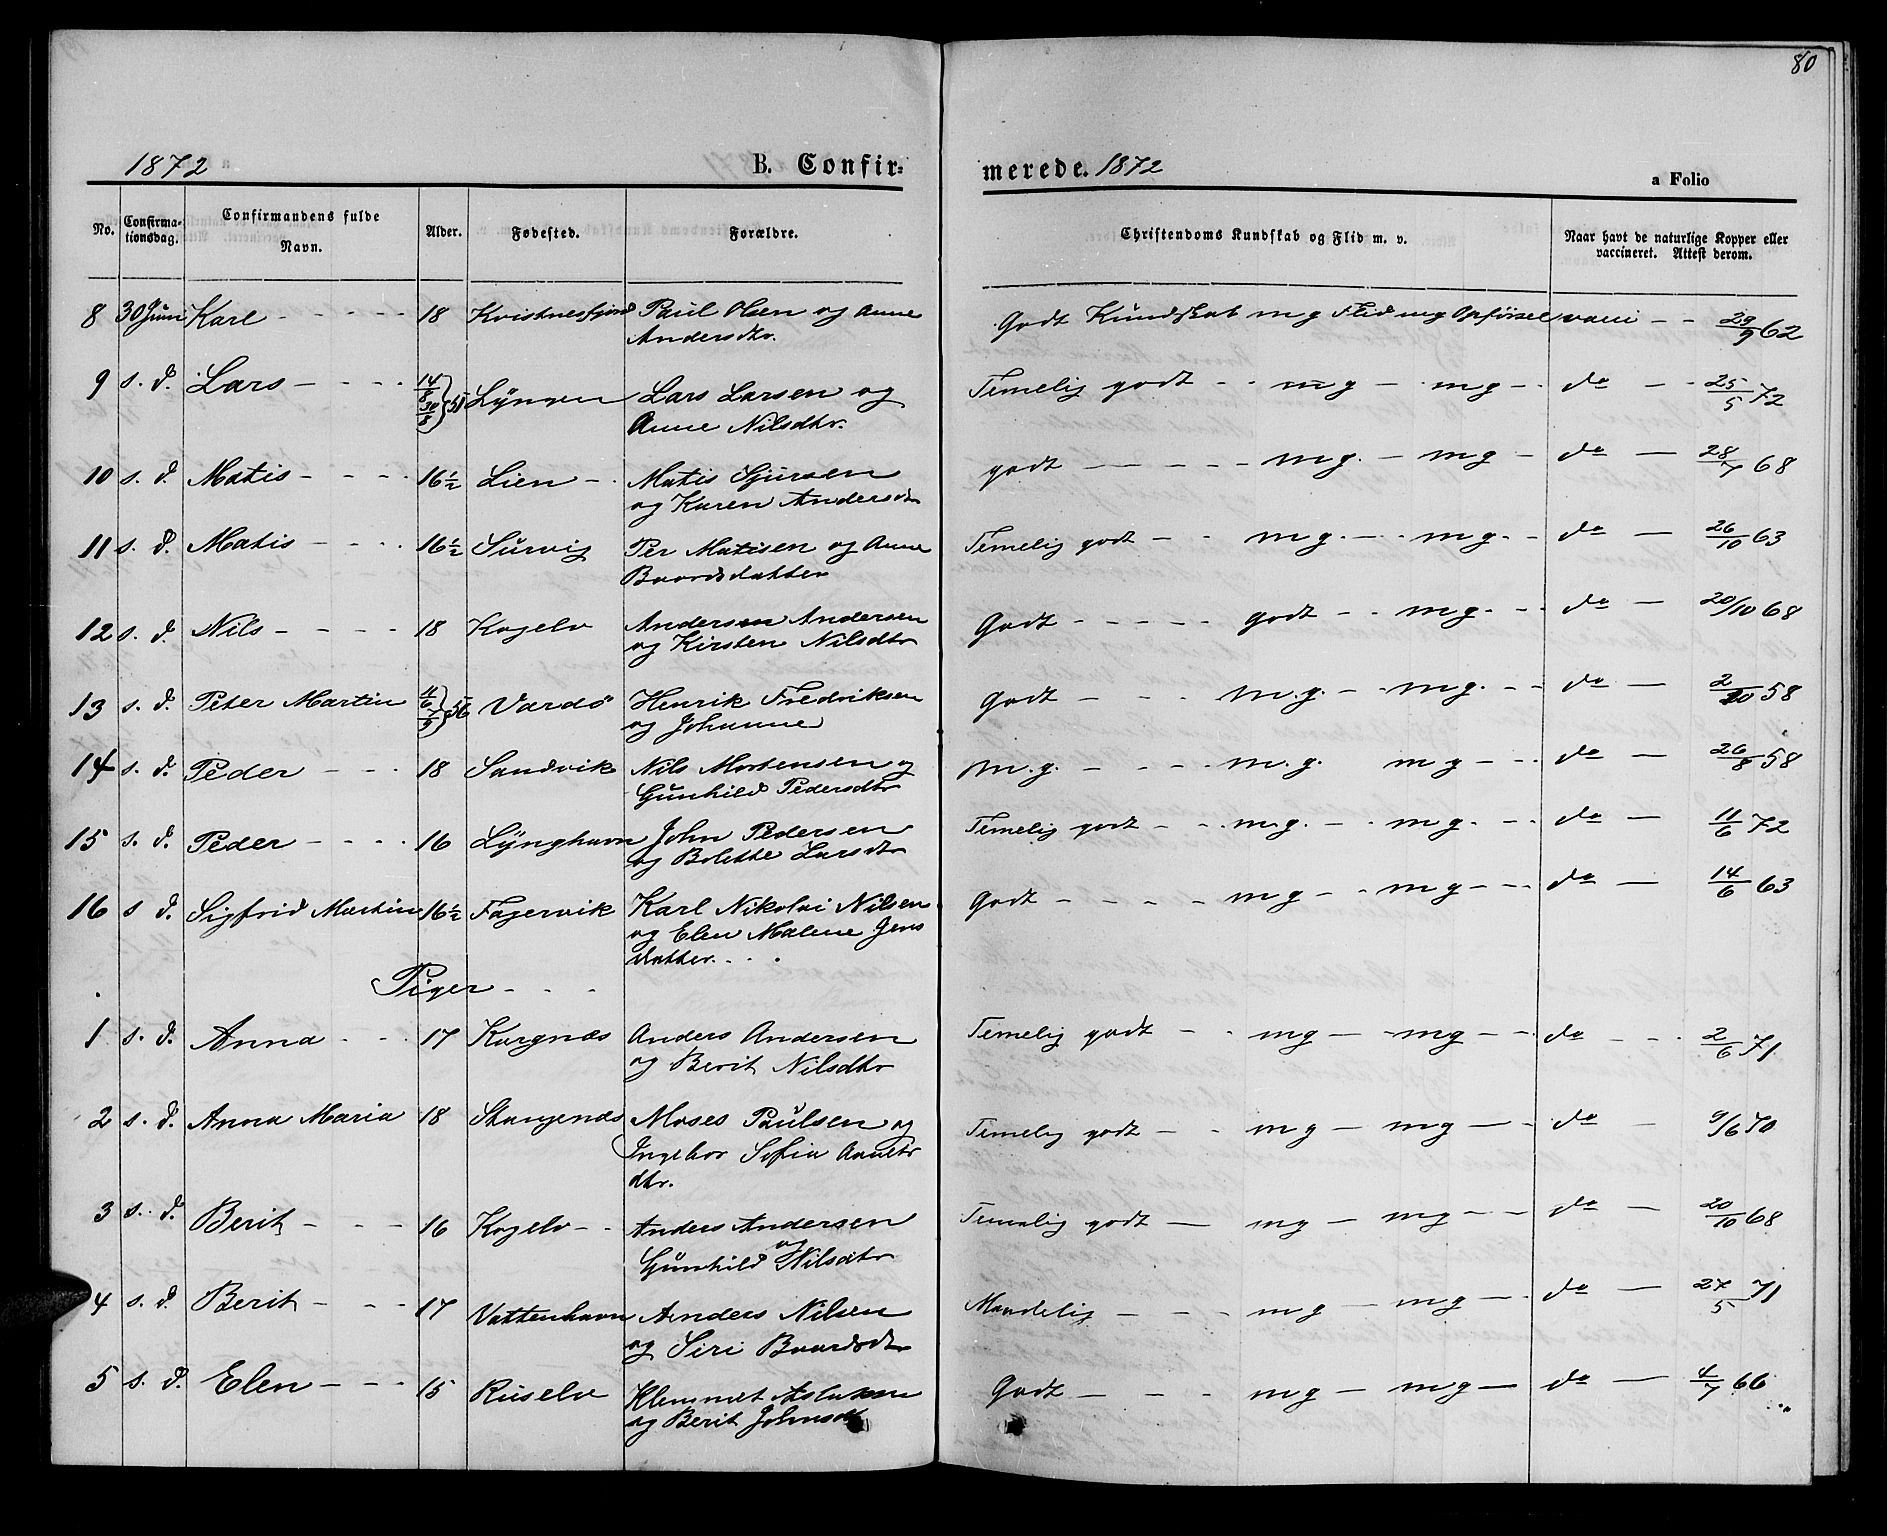 80
1872 B. Confir- merede. 1872 a Folio
No. Confirma-tionsdag. Confirmandens fulde Navn. Alder. Fødested. Forældre. Christendoms Kundskab og Flid m. v. Naar havt de naturlige Kopper eller vaccineret. Attest derom.
8 30 Juni Karl - - - - - 18 Kvistnesfjord Paul Olsen og Anne Godt Kundskab mg Flid mg Opførsel vacci - - 29/9 62
Andersdtr.
9 s. d. Lars - - - - 14/8 30/8 } 51 Lyngen Lars Larsen og Temelig godt - - mg - - mg - do - - 25/5 72
Anne Nilsdtr.
10 s. d. Matis - - - - 16½ Lien - - Matis Sjursen godt - - - - - mg. - mg - do - 28/7 68
og Karen Andersdtr
11 s. d. Matis - - - - 16½ Survig Per Matisen og Anne Temelig godt - - mg. - - mg. - do - 26/10 63
Baardsdatter
12 s. d. Nils - - - - 18 Kogelv Andersen Andersen Godt - - - - - godt - - mg. - - do - 20/10 68
og Kirsten Nilsdtr
13 s. d. Peter Martin 11/6 7/9 } 56 Vardö Henrik Fredriksen Godt - - - m.g. - - mg. - - do - 2/10 58
og Johanne
14 s. d. Peder - - - 18 Sandvik Nils Mortensen og m.g. - - - - m.g. mg - - do - 26/8 58
Gunhild Pedersdtr
15 s. d. Peder - - - - 16 Lynghavn John Pedersen Temelig godt - - - m.g. - - mg. - - do - 11/6 72
og Bolette Larsdtr
16 s d. Sigfrid Martin 16½ Fagervik Karl Nikolai Nilsen Godt - - - - - mg - - mg - - - do - 14/6 63
og Elen Malene Jens
datter. - -
Piger - - -
1 s. d. Anna - - 17 Kargnæs Anders Andersen Temelig godt - - mg - - mg - - do - - - 2/6 71
og Berit Nilsdtr
2 s. d. Anna Maria 18 Stangenæs Moses Paulsen og Temelig godt - - mg - mg - - do - 9/6 70
Ingebor Sofia
dtr.
3 s. d. Berit - - - 16 Kogelv - - Anders Andersen Temelig godt - mg - mg - - - do - 20/10 68
og
Gunhild Nilsdtr
4 s. d. Berit - - - 17 Vattenhavn Anders Nilsen Maadelig - - - mg - mg - - do - 27/5 71
og Siri Baardsdtr
5 s. d. Elen - - - 15 Ruselv Klemmet Aslaksen Godt - - - mg - mg - do - 4/7 66
og Berit Johnsdtr